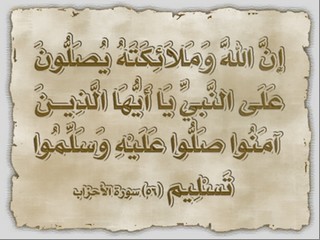 إِنَّ اللَّهَ وَمَلَائِكَتَهُ يُصَلُّونَ
عَلَى النَّبِيِّ يَا أَيُّهَا الَّذِينَ
آمَنُوا صَلُّوا عَلَيْهِ وَسَلِّمُوا
تَسْلِيم (٥٦) سورة الأحزاب